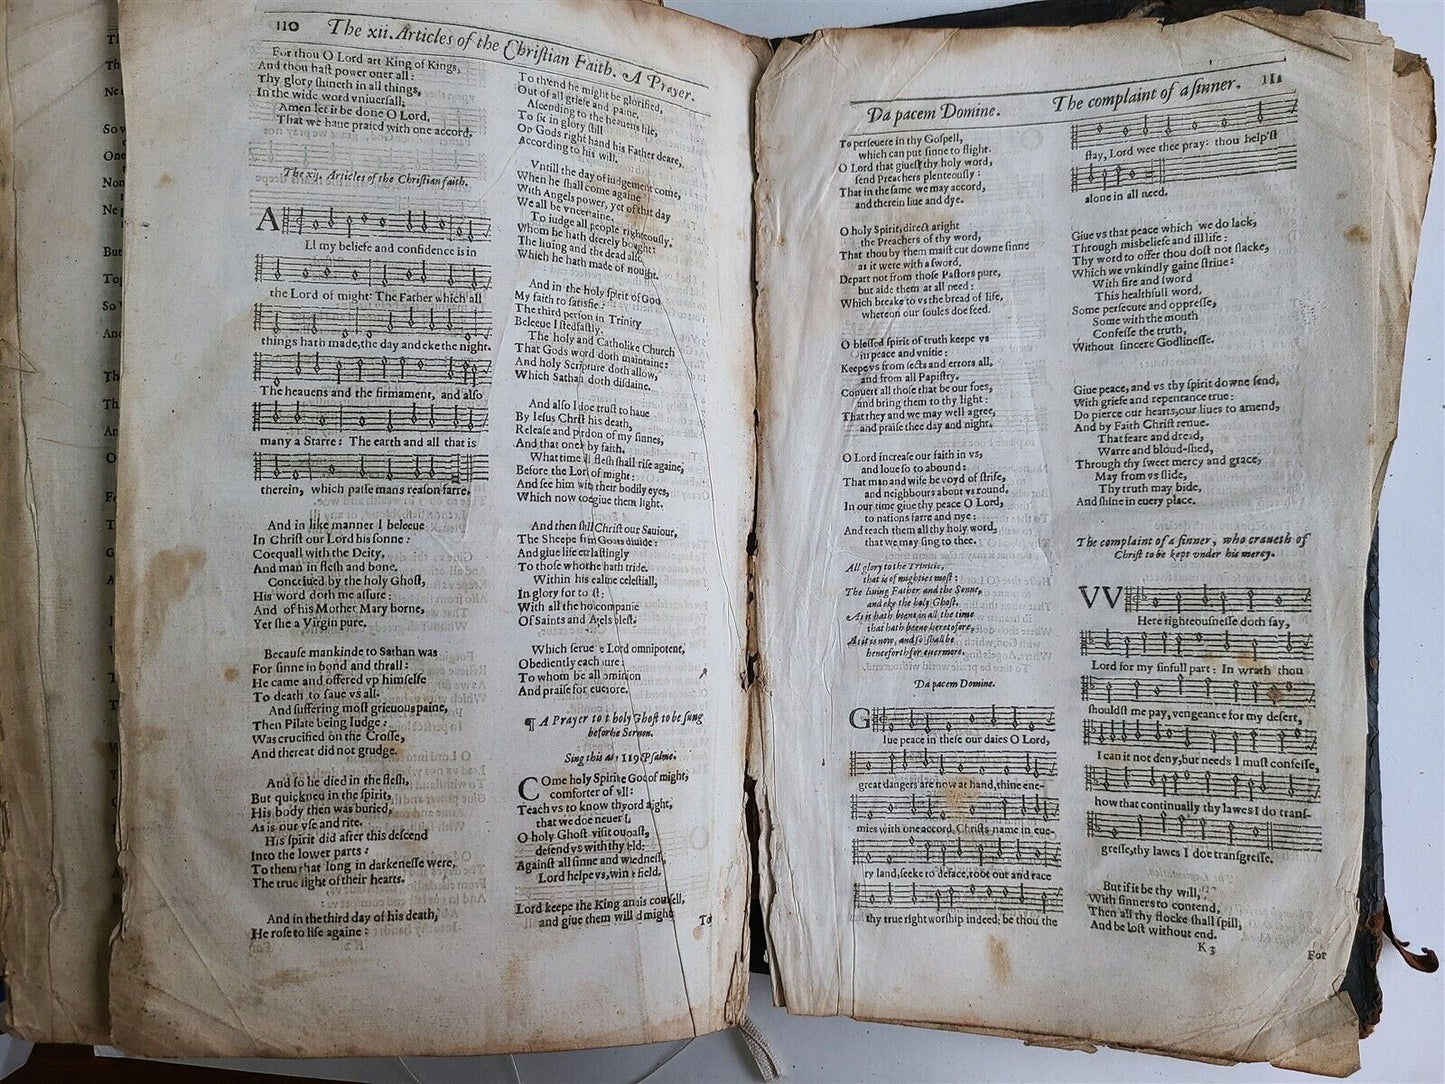 110 The xii. Articles of the Chriſtian Faith. A Prayer.
For thou O Lord art King of Kings,
And thou haſt power ouer all:
Thy glory ſhineth in all things,
In the wide word vniuerſall;
Amen let it be done O Lord,
That we haue praied with one accord,
The xij. Articles of the Chriſtian faith.
ALl my beliefe and confidence is in
the Lord of might: The Father which all
things hath made, the day and eke the night.
The heauens and the firmament, and alſo
many a Starre: The earth and all that is
therein, which paſſe mans reaſon farre.
And in like manner I beleeue
In Chriſt our Lord his ſonne:
Coequall with the Deity,
And man in fleſh and bone.
Conceiued by the holy Ghoſt,
His word doth me aſſure:
And of his Mother Mary borne,
Yet ſhe a Virgin pure.
Becauſe mankinde to Sathan was
For ſinne in bond and thrall:
He came and offered vp himſelfe
To death to ſaue vs all.
And ſuffering moſt grieuous paine,
Then Pilate being Iudge:
Was crucified on the Croſſe,
And thereat did not grudge.
And ſo he died in the fleſh,
But quickned in the ſpirit,
His body then was buried,
As is our vſe and rite.
His ſpirit did after this deſcend
Into the lower parts:
To them that long in darkeneſſe were,
The true light of their hearts.
And in the third day of his death,
He roſe to life againe:
To th'end he might be glorified,
Out of all griefe and paine.
Aſcending to the heauens hie,
To ſit in glory ſtill
On Gods right hand his Father deare,
According to his will.
Vntill the day of iudgement come,
When he ſhall come againe
With Angels power, yet of that day
We all be vncertaine.
To iudge all people righteouſly,
Whom he hath deerely bought:
The liuing and the dead alſo,
Which he hath made of nought.
And in the holy ſpirit of God
My faith to ſatisfie:
The third perſon in Trinity
Beleeue I ſtedfaſtly.
The holy and Catholike Church
That Gods word doth maintaine:
And holy Scripture doth allow,
Which Sathan doth diſdaine.
And alſo I doe truſt to haue
By Ieſus Chriſt his death,
Releaſe and pardon of my ſinnes,
And that onely by faith.
What time all fleſh ſhall riſe againe,
Before the Lord of might:
And ſee him with their bodily eyes,
Which now doe giue them light.
And then ſhall Chriſt our Sauiour,
The Sheepe from Goats diuide:
And giue life euerlaſtingly
To thoſe whom he hath tride.
Within his realme celeſtiall,
In glory for to reſt:
With all the holy companie
Of Saints and Angels bleſt.
Which ſerue the Lord omnipotent,
Obediently each houre:
To whom be all dominion
And praiſe for euermore.
¶ A Prayer to the holy Ghoſt to be ſung
before the Sermon.
Sing this as the 119 Pſalme.
COme holy Spirit the God of might,
comforter of vs all:
Teach vs to know thy word aright,
that we doe neuer fall.
O holy Ghoſt viſit our coaſt,
defend vs with thy ſhield:
Againſt all ſinne and wickedneſſe,
Lord helpe vs, win the field.
Lord keepe the King and his counſell,
and giue them will and might
To
Da pacem Domine. The complaint of a ſinner. 111
To perſeuere in thy Goſpell,
which can put ſinne to flight.
O Lord that giueſt thy holy word,
ſend Preachers plenteouſly:
That in the ſame we may accord,
and therein liue and dye.
O holy Spirit, direct aright
the Preachers of thy word,
That thou by them maiſt cut downe ſinne
as it were with a ſword.
Depart not from thoſe Paſtors pure,
but aide them at all need:
Which breake to vs the bread of life,
whereon our ſoules doe feed.
O bleſſed ſpirit of truth keepe vs
in peace and vnitie:
Keepe vs from ſects and errors all,
and from all Papiſtry.
Conuert all thoſe that be our foes,
and bring them to thy light:
That they and we may well agree,
and praiſe thee day and night.
O Lord increaſe our faith in vs,
and loue ſo to abound:
That man and wife be voyd of ſtrife,
and neighbours about vs round,
In our time giue thy peace O Lord,
to nations farre and nye:
And teach them all thy holy word,
that we may ſing to thee.
All glory to the Trinitie,
that is of mighties moſt:
The liuing Father and the Sonne,
and eke the holy Ghoſt.
As it hath beene in all the time
that hath beene heretofore,
As it is now, and ſo ſhall be
henceforth for euermore.
Da pacem Domine.
GIue peace in theſe our daies O Lord,
great dangers are now at hand, thine ene-
mies with one accord, Chriſts name in eue-
ry land, ſeeke to deface, root out and race
thy true right worſhip indeed: be thou the
ſtay, Lord wee thee pray: thou help'ſt
alone in all need.
Giue vs that peace which we do lack,
Through misbeliefe and ill life:
Thy word to offer thou doſt not ſlacke,
Which we vnkindly gaine ſtriue:
With fire and ſword
This healthfull word,
Some perſecute and oppreſſe,
Some with the mouth
Confeſſe the truth,
Without ſincere Godlineſſe.
Giue peace, and vs thy ſpirit downe ſend,
With griefe and repentance true:
Do pierce our hearts, our liues to amend,
And by Faith Chriſt renue.
That feare and dread,
Warre and bloud-ſhed,
Through thy ſweet mercy and grace,
May from vs ſlide,
Thy truth may bide,
And ſhine in euery place.
The complaint of a ſinner, who craueth of
Chriſt to be kept vnder his mercy.
VVHere righteouſneſſe doth ſay,
Lord for my ſinfull part: In wrath thou
ſhouldſt me pay, vengeance for my deſert,
I can it not deny, but needs I muſt confeſſe,
how that continually thy lawes I do tranſ-
greſſe, thy lawes I doe tranſgreſſe.
But if it be thy will,
With ſinners to contend,
Then all thy flocke ſhall ſpill,
And be loſt without end.
K 3
For